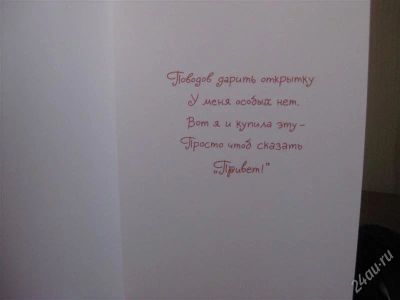 Поводов дарить открытку
У меня особых нет.
Вот я и купила эту –
Просто чтоб сказать
„Привет!"
24au.ru